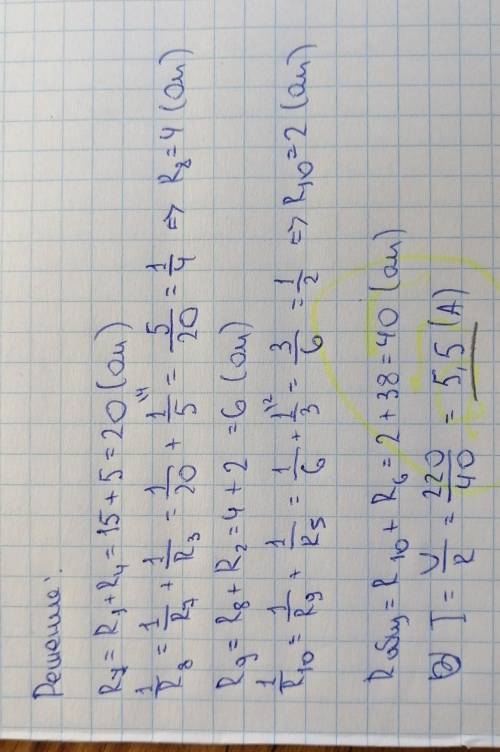 Решение:
R₇ = R₁ + R₄ = 15 + 5 = 20 (Ом)
1/R₈ = 1/R₇ + 1/R₃ = 1/20 + 1/5 ^14 = 5/20 = 1/4 => R₈ = 4 (Ом)
R₉ = R₈ + R₂ = 4 + 2 = 6 (Ом)
1/R₁₀ = 1/R₉ + 1/R₅ = 1/6 + 1/3 ^12 = 3/6 = 1/2 => R₁₀ = 2 (Ом)
Rобщ = R₁₀ + R₆ = 2 + 38 = 40 (Ом)
2) I = U/R = 220/40 = 5,5 (А)